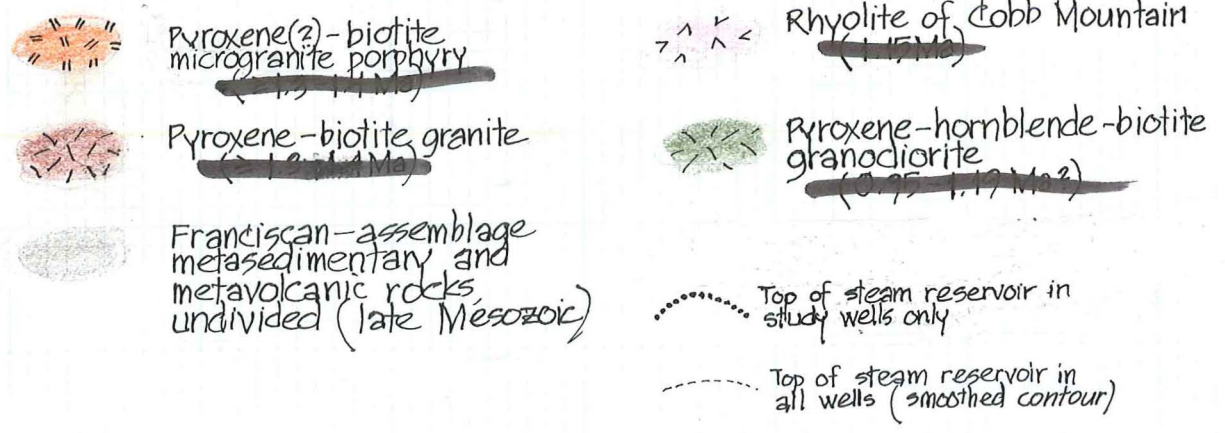 Pyroxene(?)-biotite
microgranite porphyry
Pyroxene-biotite granite
Franciscan-assemblage
metasedimentary and
metavolcanic rocks,
undivided (late Mesozoic)
Rhyolite of Cobb Mountain
(1.15 Ma)
Pyroxene-hornblende-biotite
granodiorite
(0.95-1.19 Ma?)
Top of steam reservoir in
study wells only
Top of steam reservoir in
all wells (smoothed contour)